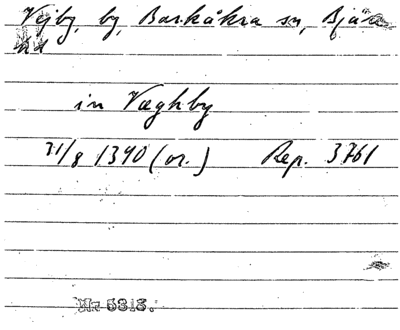 Vejby, by, Barkåkra sn, Bjäre
hd
in Væghby
31/8 1390 (or.) Rep. 3761
Nr. 5313.